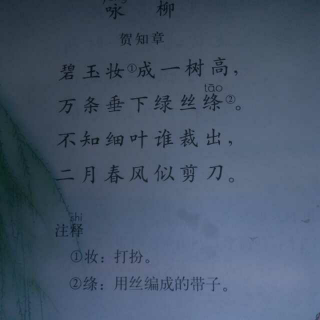 咏柳
贺知章
碧玉妆①成一树高，
万条垂下绿丝绦②。
tāo
不知细叶谁裁出，
二月春风似剪刀。
注释
shì
①妆：打扮。
②绦：用丝编成的带子。